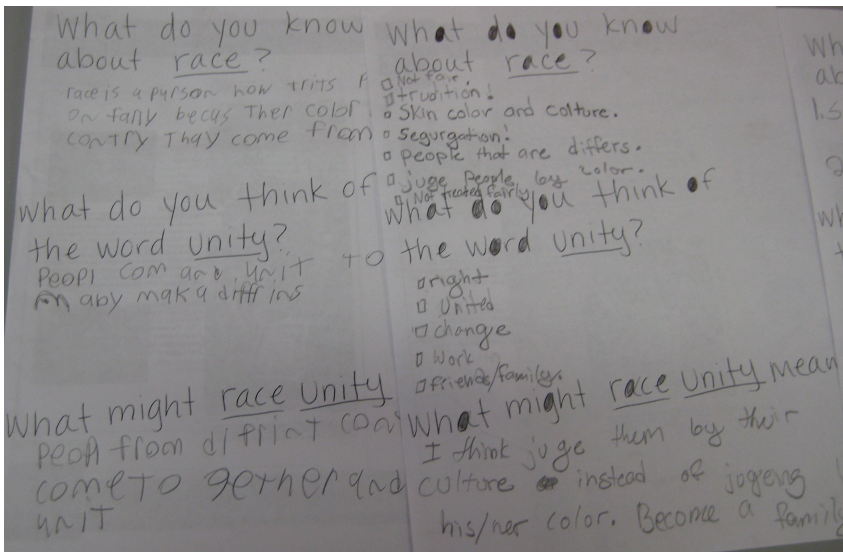 What do you know
about race?
race is a purson how trits
on farly becus Ther color
contry Thay come from
What do you think of
the word unity?
Peopl com and unit to
maby mak a diffrins
What might race unity
from difrint
come to gether and
unit
What do you know
about race?
Not fair.
trudition!
Skin color and colture.
Segurgation!
people that are differs.
juge people by color.
Not treated fairly
What do you think of
the word unity?
right
United
change
Work
friends/family.
What might race unity mean
I think juge them by their
culture instead of jogeng
his/her color. Become a family
Wh
ab
1.s
2
wh
t